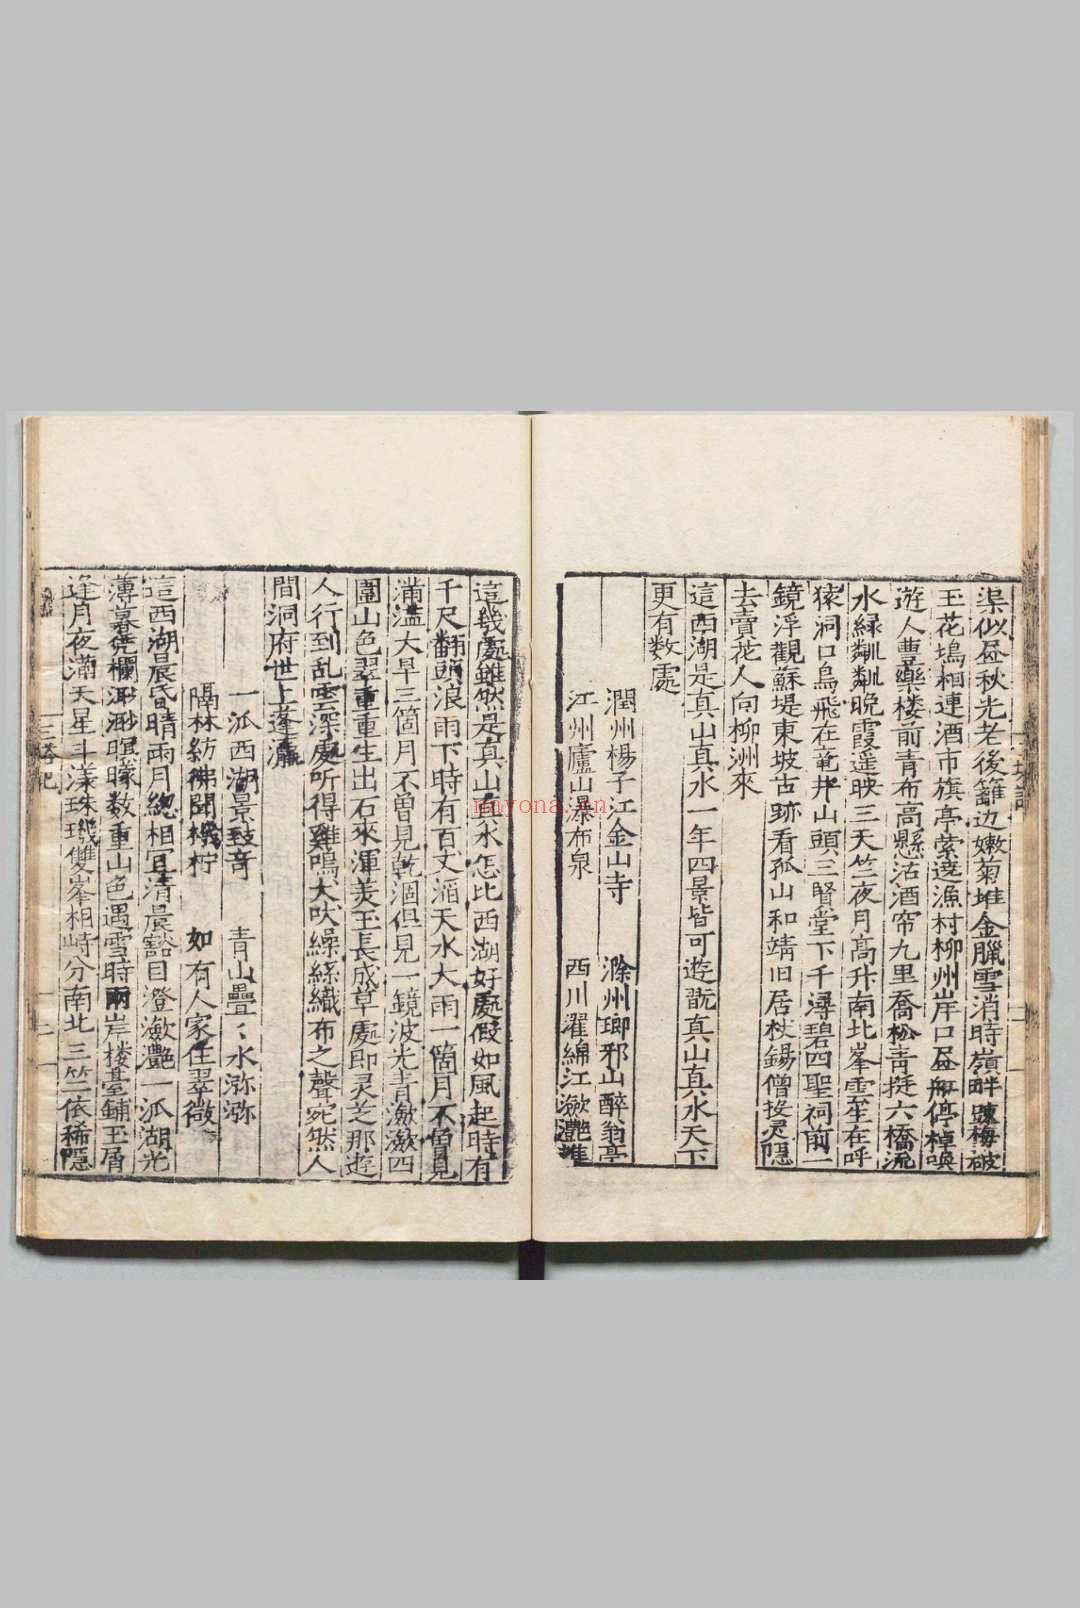 渠似昼秋光老後籬边嫩菊堆金臘雪消時嶺畔踈梅破
玉花塢相連酒市旗亭縈遶漁村柳州岸口昼舡停棹喚
遊人豊樂楼前青布高懸沽酒帘九里喬松青挺六橋流
水緑粼粼晩霞遥映三天竺夜月高升南北峯雲生在呼
猿洞口鳥飛在竜井山頭三賢堂下千潯碧四聖祠前一
鏡浮觀蘇堤東坡古跡看孤山和靖旧居杖錫僧投灵隠
去賣花人向柳洲來
這西湖是真山真水一年四景皆可遊翫真山真水天下
更有数處
潤州楊子江金山寺 滁州瑯邪山醉翁亭
江州廬山瀑布泉 西川濯綿江瀲灩堆
這幾處雖然是真山真水怎比西湖好處假如風起時有
千尺翻頭浪雨下時有百丈滔天水大雨一箇月不曽見
滿溢大旱三箇月不曽見乾涸但見一鏡波光青瀲瀲四
圍山色翠重重生出石來渾美玉長成草處即灵芝那遊
人行到乱雲深處听得雞鳴犬吠繰絲織布之聲宛然人
間洞府世上蓬瀛
一派西湖景致奇 青山疊〻水㳽㳽
隔林紡彿聞機杼 如有人家住翠微
這西湖晨昏晴雨月緫相宜清晨豁目澄瀲灩一派湖光
薄暮凭欄渺渺暝朦数重山色遇雪時兩岸楼臺鋪玉屑
逢月夜滿天星斗漾珠璣雙峯相峙分南北三竺依稀隠
三塔記